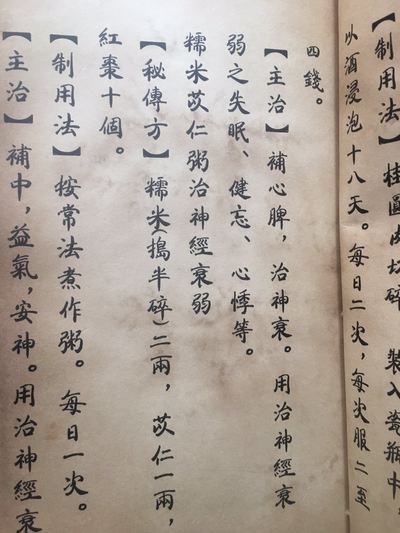 【制用法】桂圓肉切碎，裝入瓷瓶中，
以酒浸泡十八天。每日二次，每次服二至
四錢。
【主治】補心脾，治神衰。用治神經衰
弱之失眠、健忘、心悸等。
糯米苡仁粥治神經衰弱
【秘傳方】糯米（搗半碎）二兩，苡仁一兩，
紅棗十個。
【制用法】按常法煮作粥。每日一次。
【主治】補中，益氣，安神。用治神經衰